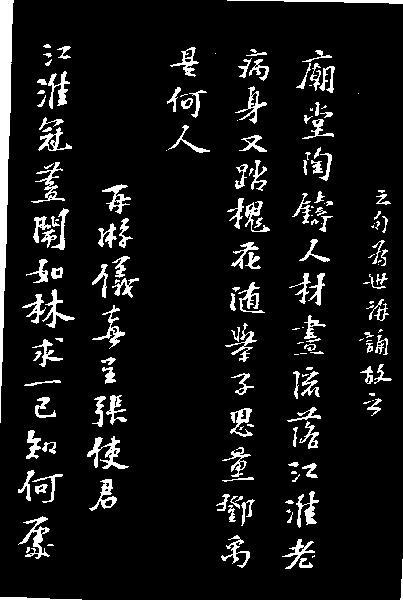 之句為世誦故云
廟堂陶鑄人材盡流落江淮老
病身又踏槐花随舉子思量鄧禹
是何人
再游儀真呈張使君
江淮冠蓋鬧如林求一己知何處